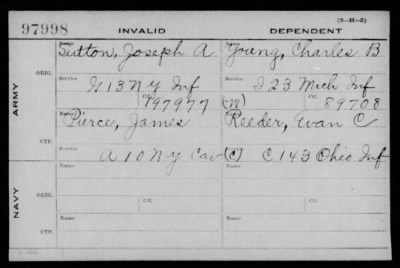 (3-H-5)
97998 INVALID DEPENDENT
Name Sutton, Joseph A Young, Charles B
ORIG.
Service Service
G 13 N Y Inf I 23 Mich Inf
Ctf. 197977 (W) Ctf. 89708
ARMY
Name Pierce, James Reeder, Evan C
CTF.
Service Service
A 10 N Y Cav (C) C 143 Ohio Inf
Name Name
ORIG.
Service Ctf. Service Ctf.
NAVY
Name Name
CTF.
Service Service